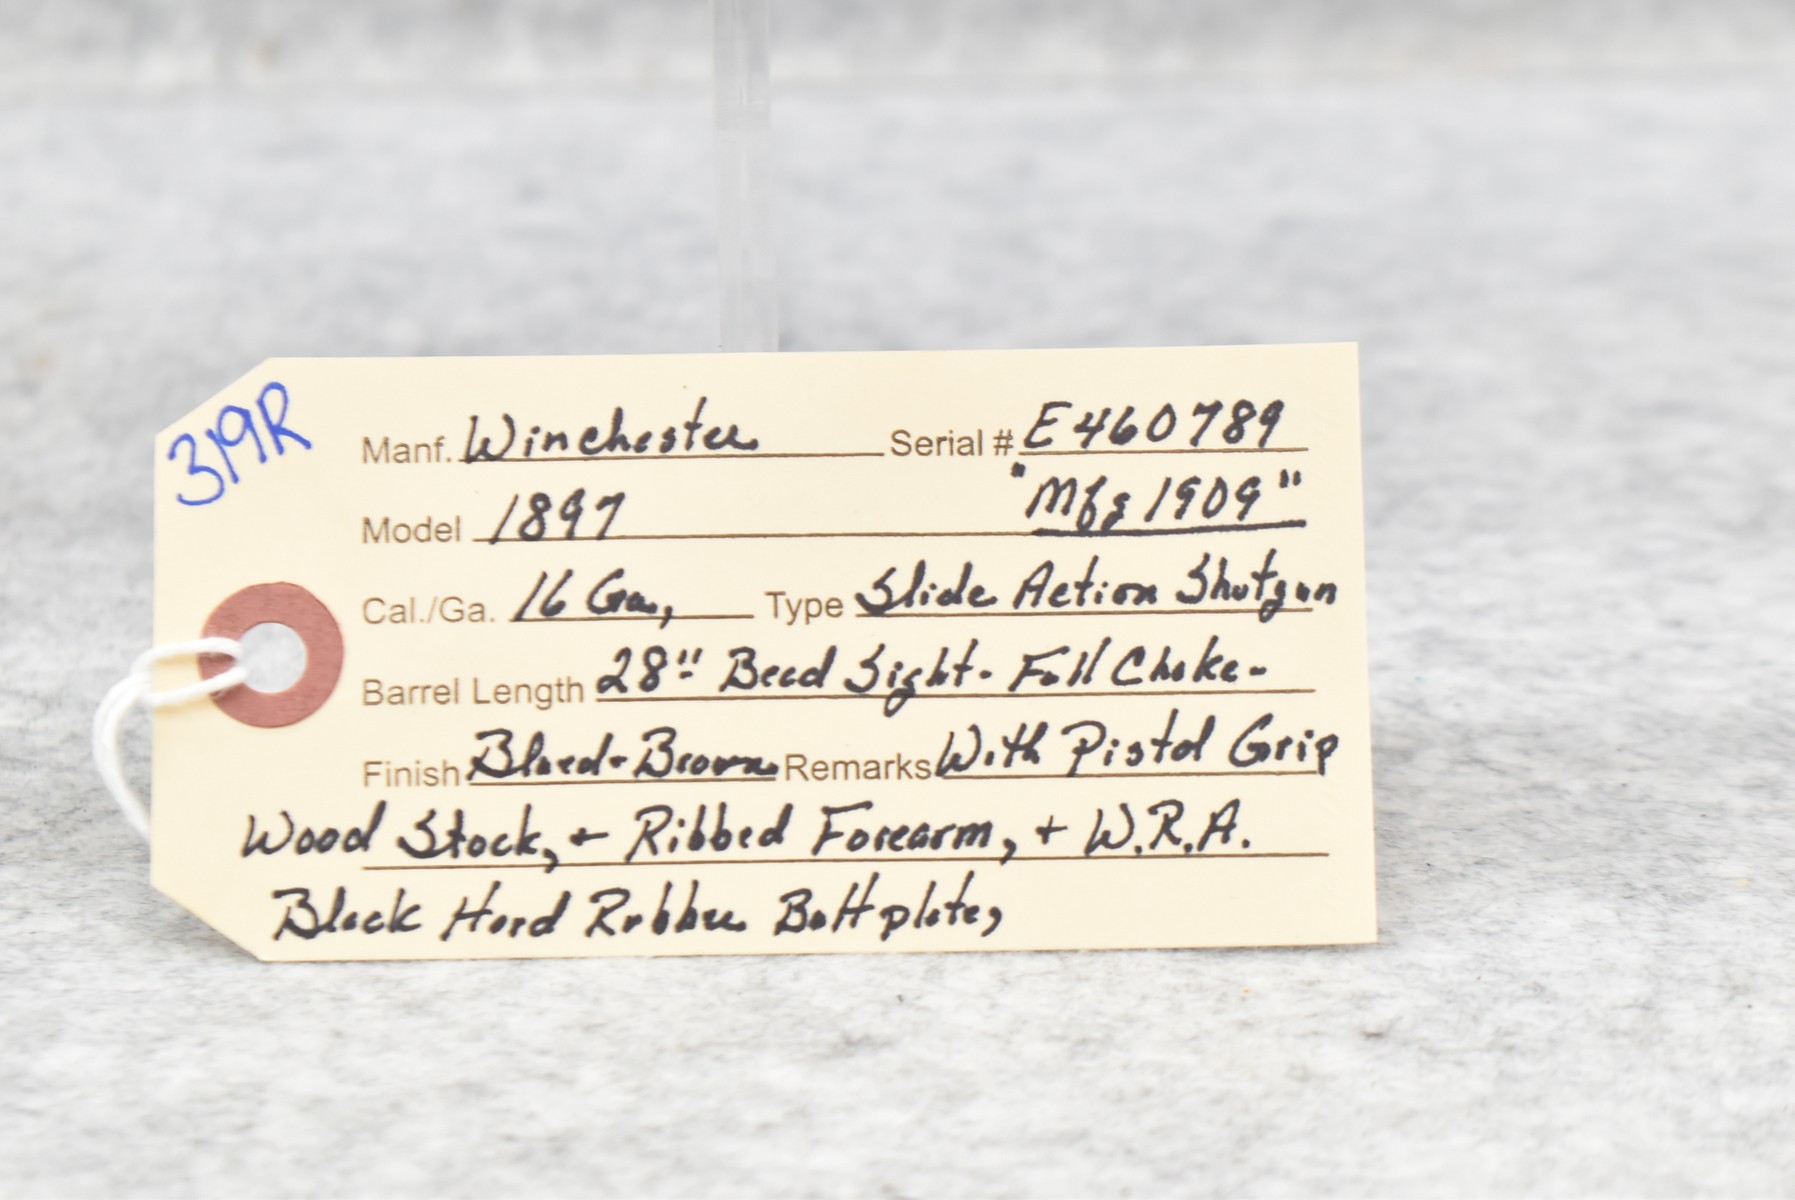 319R
Manf. Winchester Serial # E460789
Model 1897 "Mfg 1909"
Cal./Ga. 16 Ga, Type Slide Action Shotgun
Barrel Length 28" Bead Sight- Full Choke-
Finish Blued-Brown Remarks With Pistol Grip
Wood Stock, + Ribbed Forearm, + W.R.A.
Black Hard Rubber Buttplate,